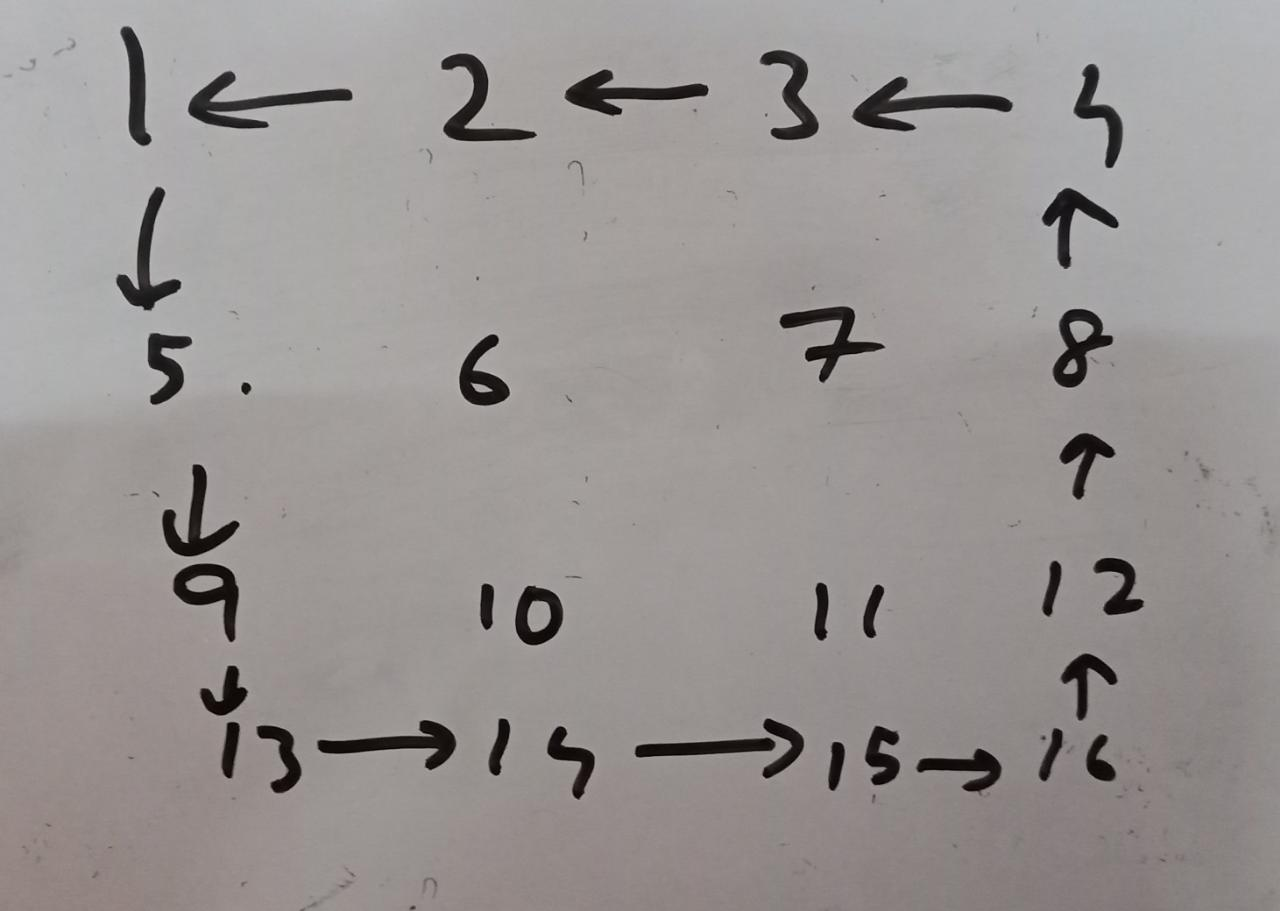 1 ← 2 ← 3 ← 4
↓ ↑
5 . 6 7 8
↓ ↑
9 10 11 12
↓ ↑
13 → 14 → 15 → 16